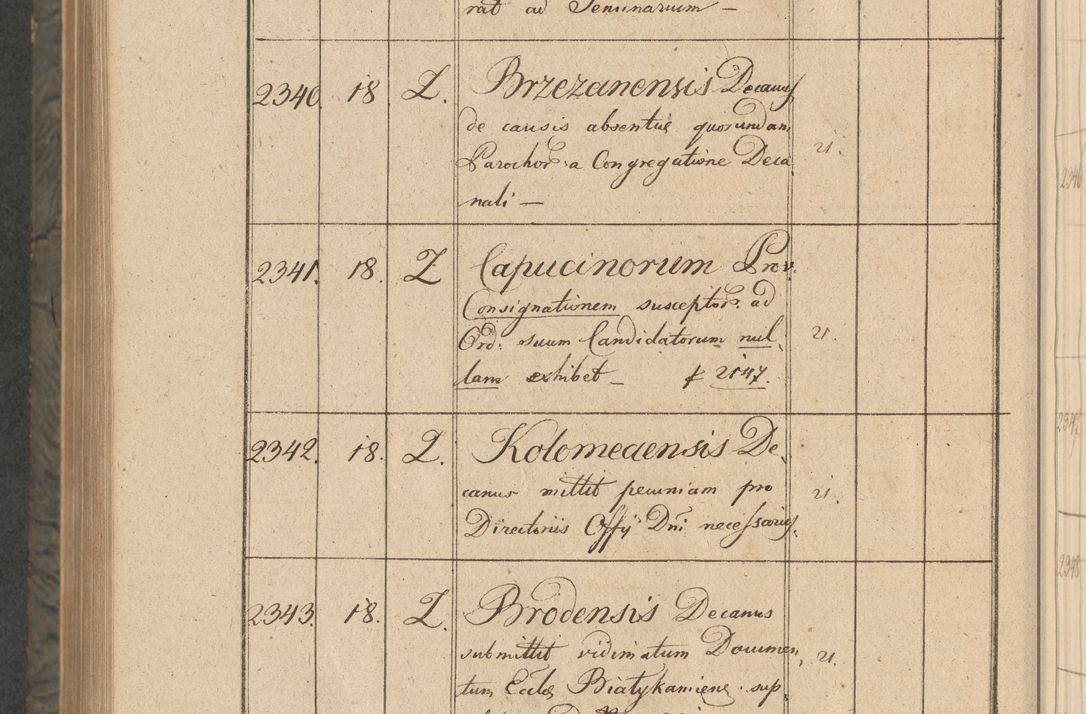 rat ad Seminarium —
2340. 18 Z. Brzezanensis Decanus
de causis absentiæ quorundam
Parochor. a Congregatione Deca
nali — 21.
2341. 18. Z Capucinorum Prov.
Consignationem susceptor. ad
Ord: suum Candidatorum nul, 21.
lam exhibet — f 2147.
2342. 18. Z. Kolomeaensis De,
canus mittit pecuniam pro 21.
Directoriis Offij Dni necessarijs.
2343. 18. Z. Brodensis Decanus
submittit vidimatum Documen, 21.
tum Eccles Białykamiens. sup,
2346
2347
2348